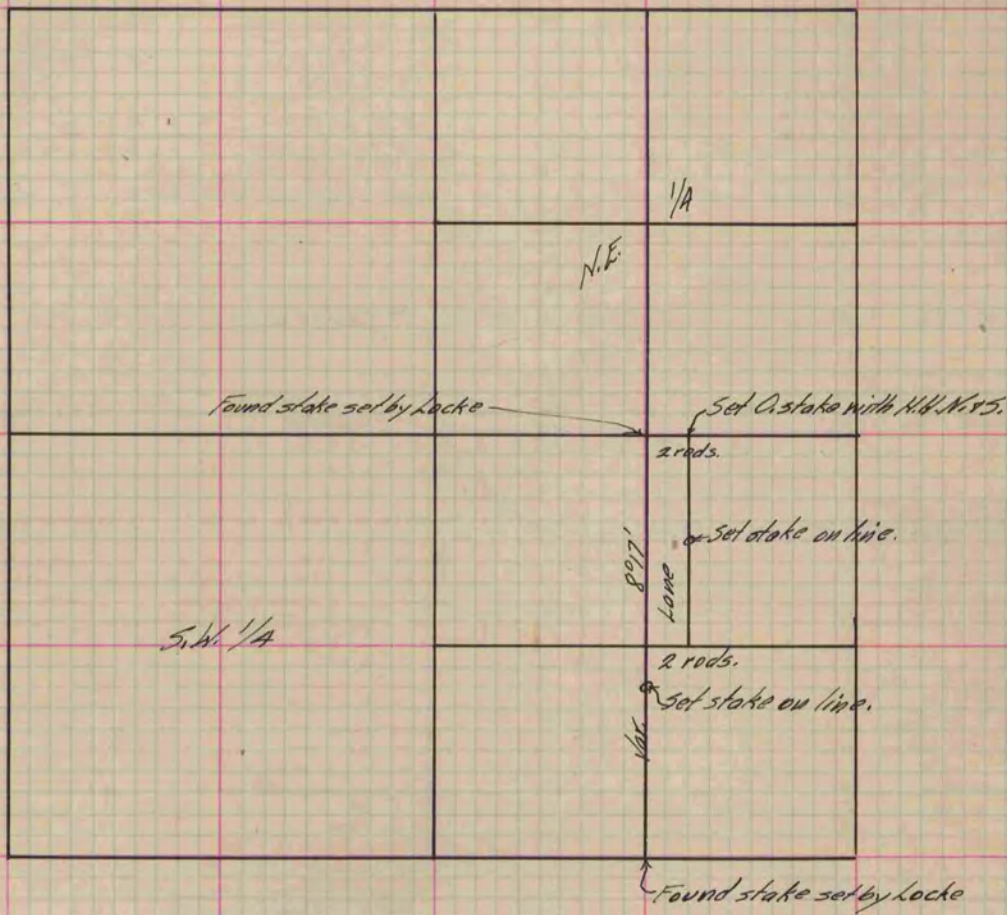 1/4
N.E.
Found stake set by Locke
Set O. stake with H.H. N. & S.
2 rods.
8°17'
Lane
Set stake on line.
S.W. 1/4
2 rods.
Set stake on line.
Var.
Found stake set by Locke